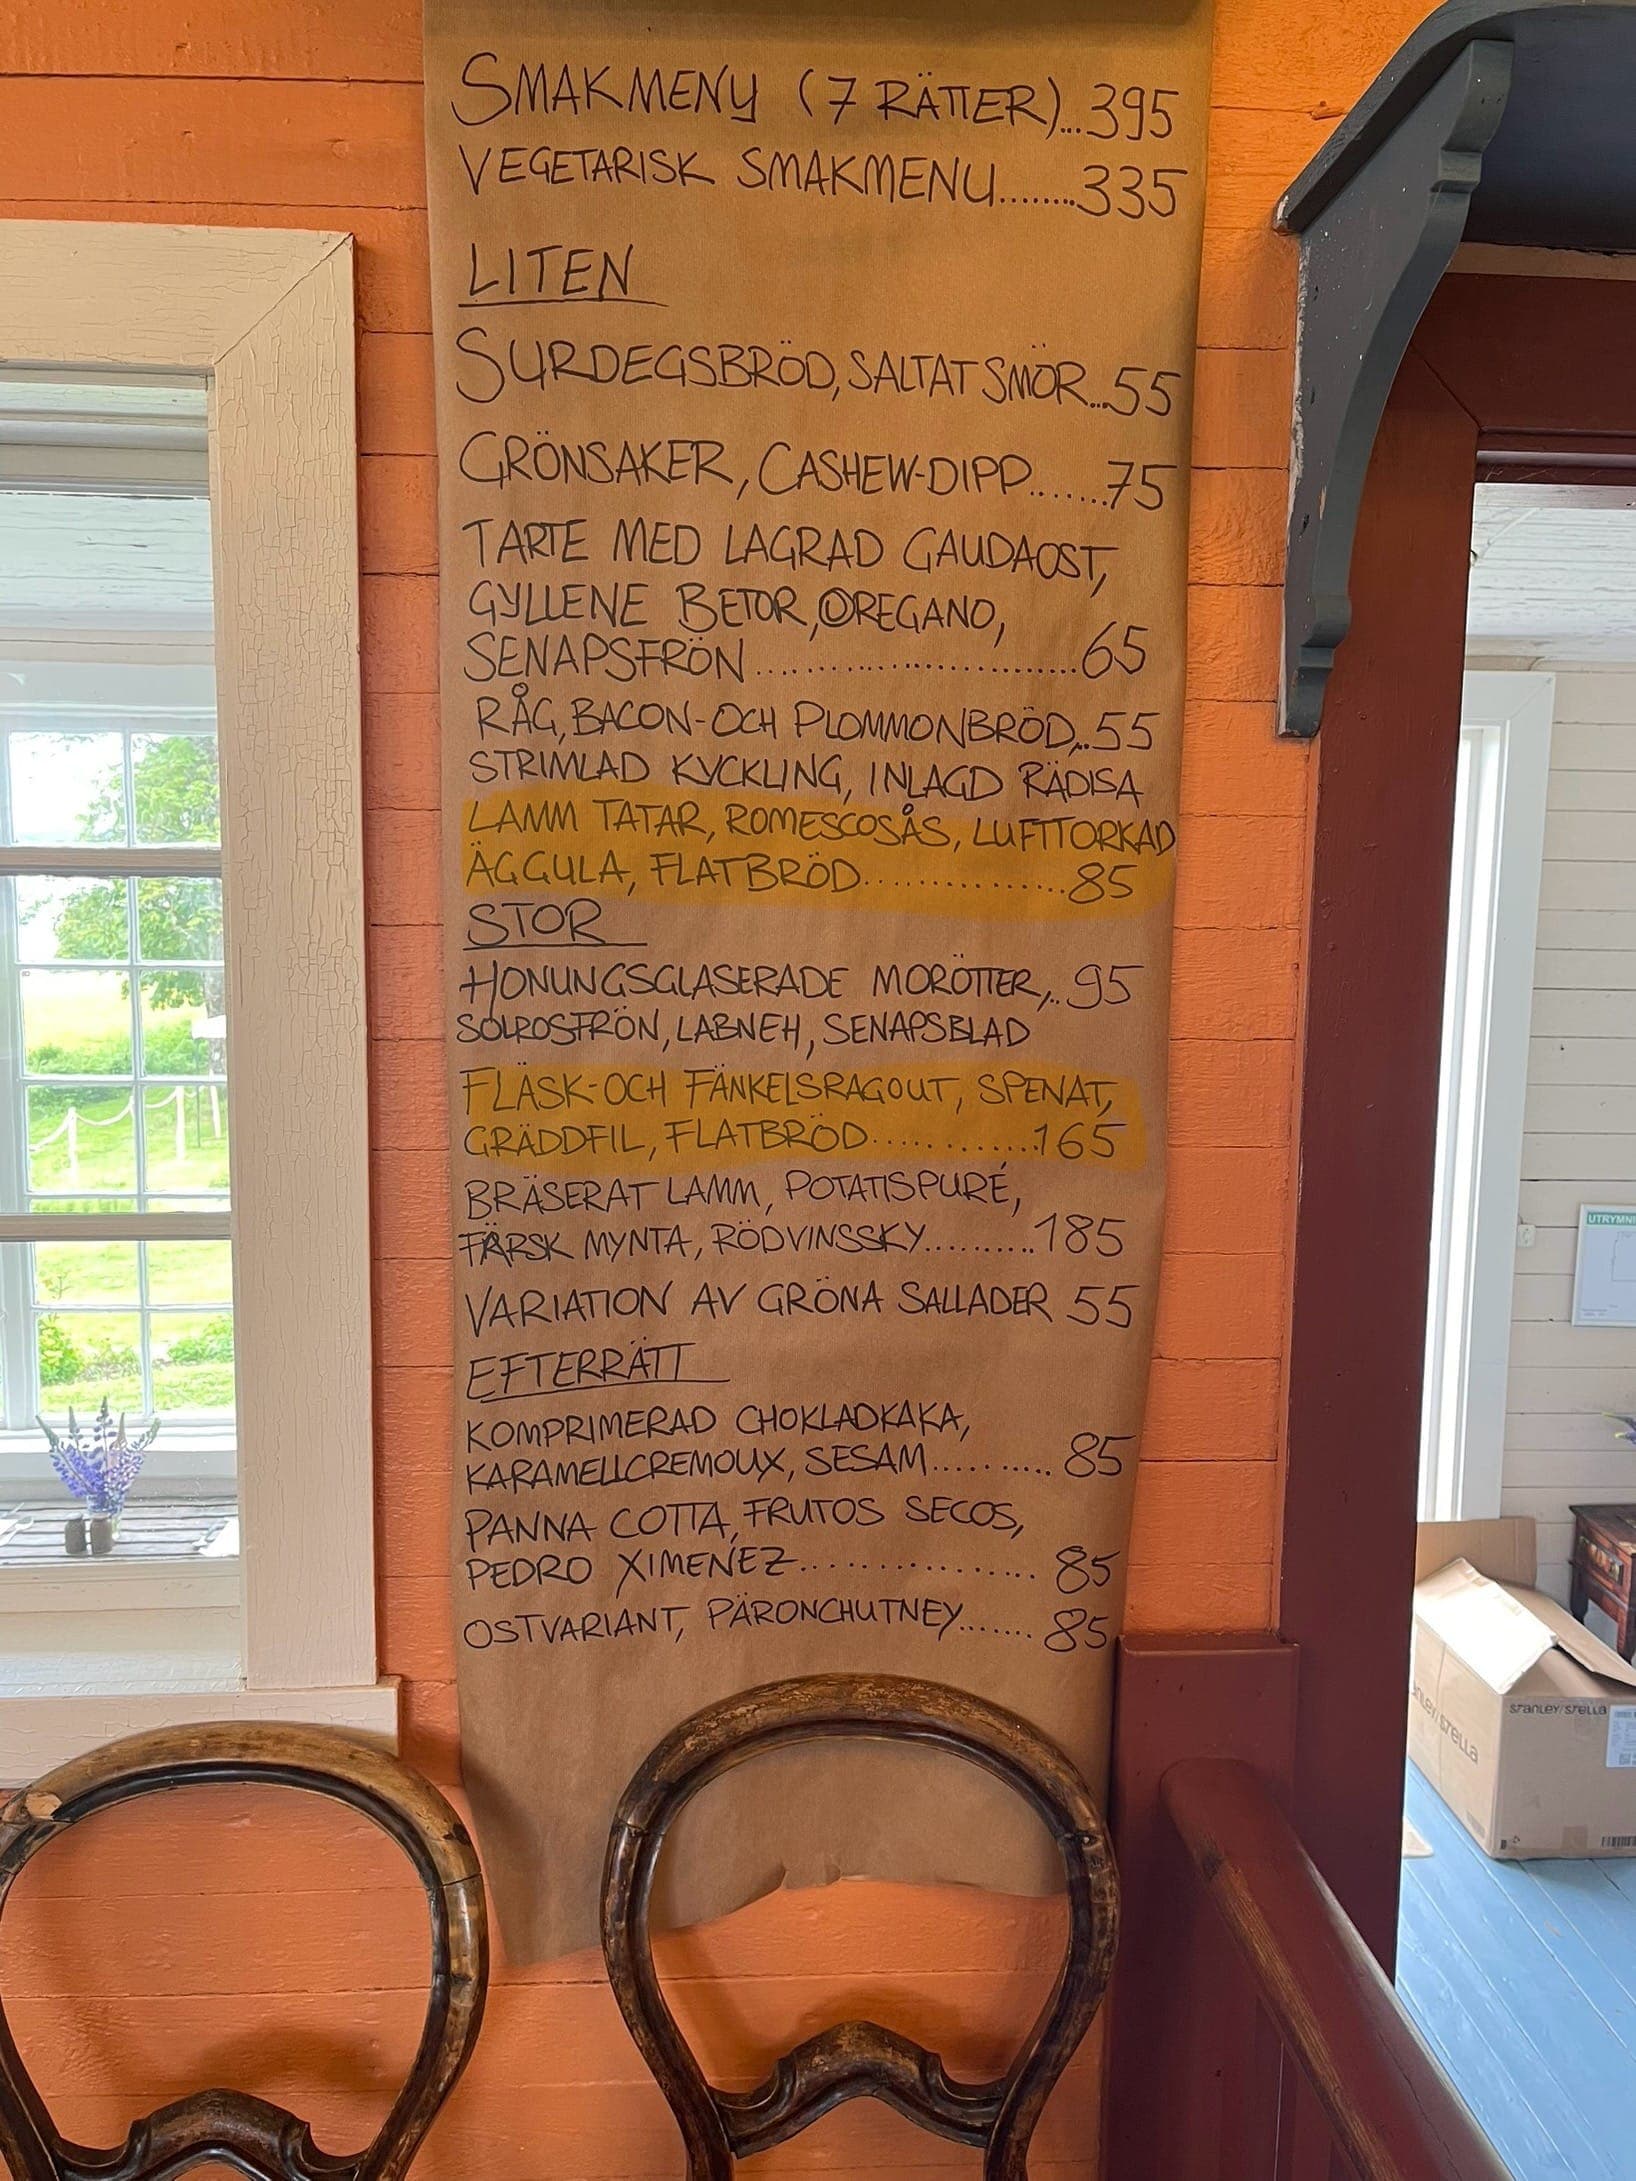 SMAKMENY (7 RÄTTER)...395
VEGETARISK SMAKMENU........335
LITEN
SURDEGSBRÖD, SALTAT SMÖR...55
GRÖNSAKER, CASHEW-DIPP.......75
TARTE MED LAGRAD GAUDAOST,
GYLLENE BETOR, OREGANO,
SENAPSFRÖN..............................65
RÅG, BACON- OCH PLOMMONBRÖD,..55
STRIMLAD KYCKLING, INLAGD RÄDISA
LAMM TATAR, ROMESCOSÅS, LUFTTORKAD
ÄGGULA, FLATBRÖD................85
STOR
HONUNGSGLASERADE MORÖTTER,..95
SOLROSFRÖN, LABNEH, SENAPSBLAD
FLÄSK- OCH FÄNKELSRAGOUT, SPENAT,
GRÄDDFIL, FLATBRÖD.............165
BRÄSERAT LAMM, POTATISPURÉ,
FÄRSK MYNTA, RÖDVINSSKY..........185
VARIATION AV GRÖNA SALLADER 55
EFTERRÄTT
KOMPRIMERAD CHOKLADKAKA,
KARAMELLCREMOUX, SESAM.......... 85
PANNA COTTA, FRUTOS SECOS,
PEDRO XIMENEZ............... 85
OSTVARIANT, PÄRONCHUTNEY....... 85
UTRYMNI
STANLEY/STELLA
STANLEY/STELLA